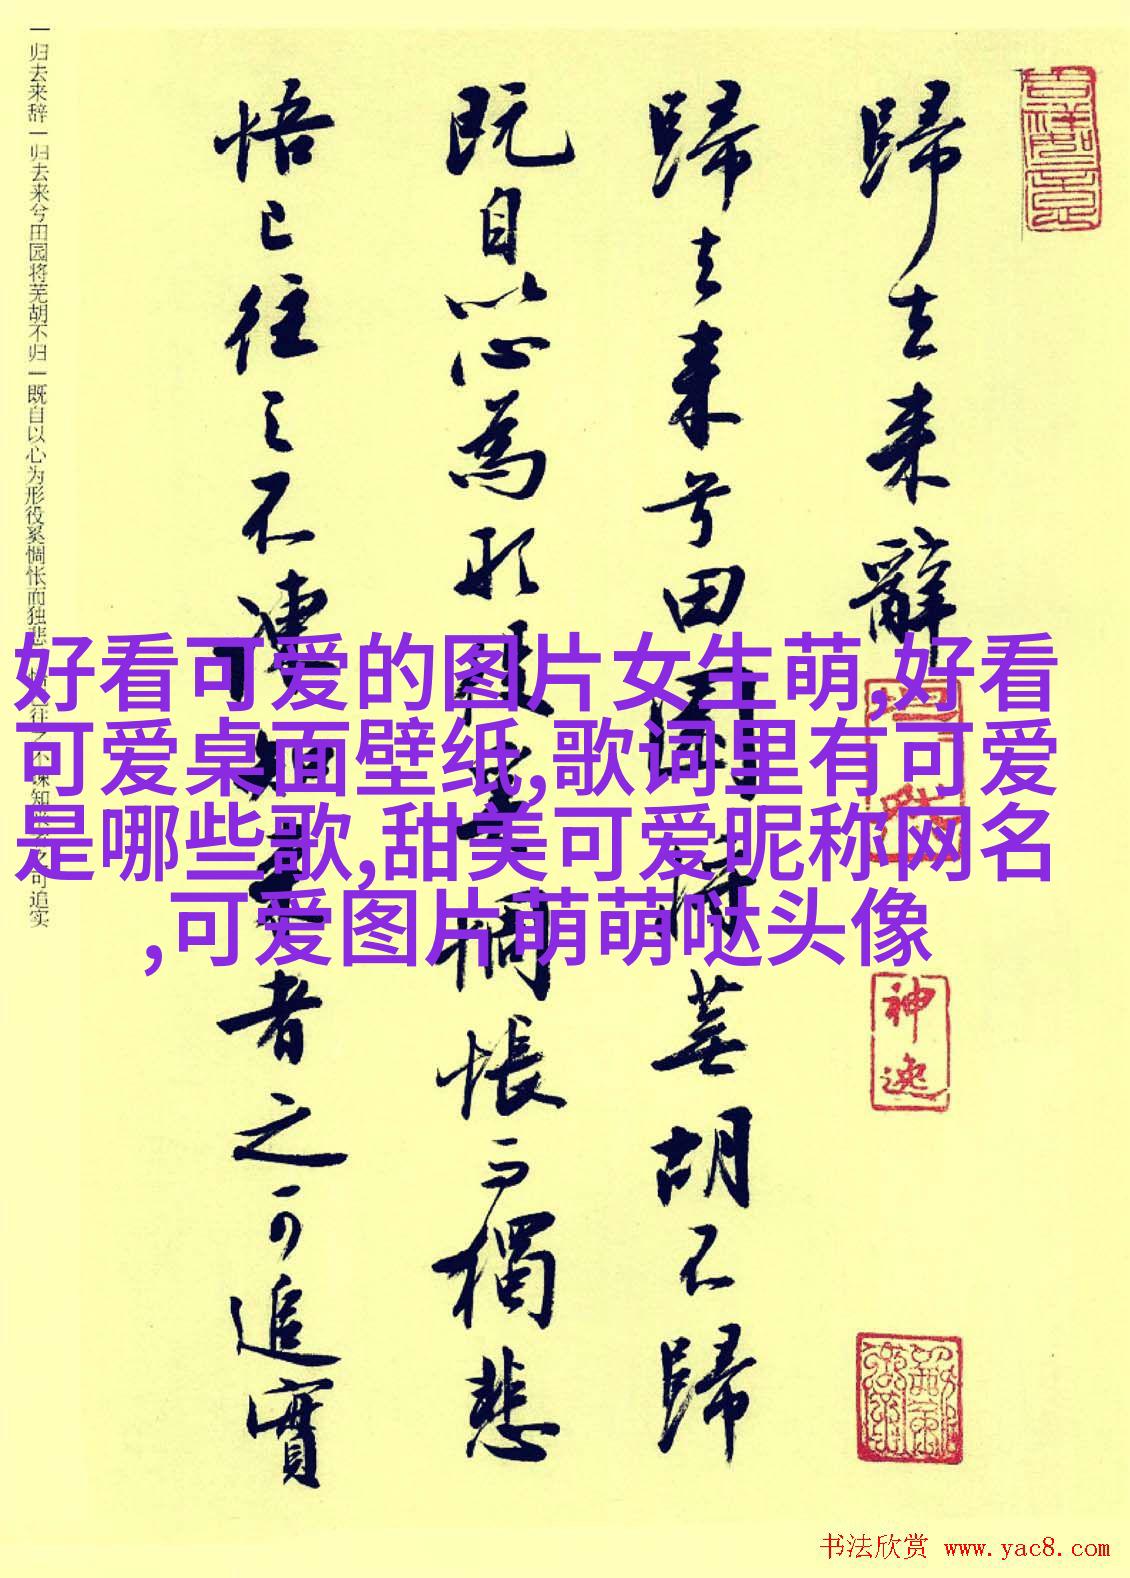 歸去来辭
歸去来兮田園将蕪胡不歸
既自以心為形役奚惆悵而獨悲
悟已往之不諫知来者之可追實
一归去来辞一归去来兮田园将芜胡不归一既自以心为形役奚惆怅而独悲一悟已往之不谏知来者之可追实
好看可爱的图片女生萌,好看
可爱桌面壁纸,歌词里有可爱
是哪些歌,甜美可爱昵称网名
,可爱图片萌萌哒头像
神逸
书法欣赏 www.yac8.com